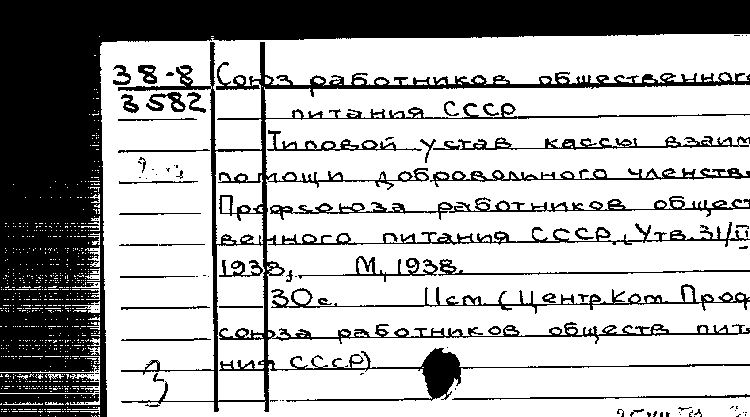 38-8 Союз работников общественного
3582 питания СССР
Типовой устав кассы взаим
помощи добровольного членства
Профсоюза работников общест
венного питания СССР. Утв. 31/
1938,. М, 1938.
30с. 11см (Центр. Ком. Проф
союза работников обществ пит
ния СССР)
3